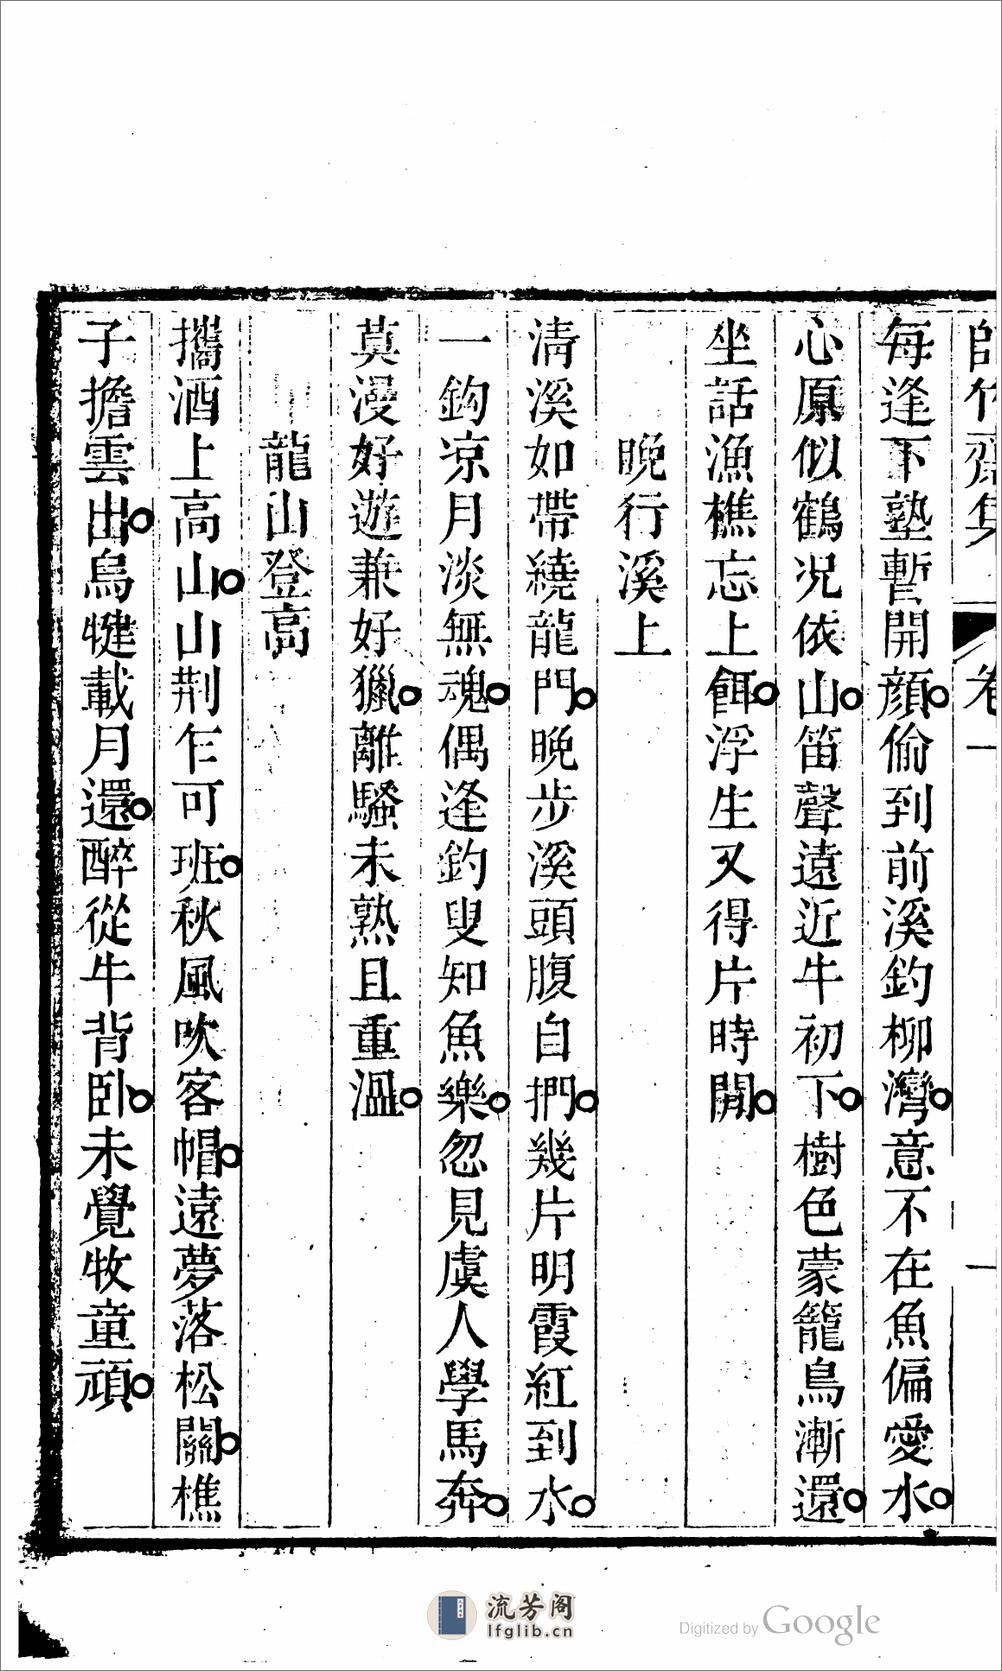 師竹齋集 卷一 一
每逢下塾暫開顔偷到前溪釣柳灣意不在魚偏愛水
心原似鶴况依山笛聲遠近牛初下樹色蒙籠鳥漸還
坐話漁樵忘上餌浮生又得片時閒
晚行溪上
清溪如帶繞龍門晚步溪頭腹自捫幾片明霞紅到水
一鈎凉月淡無魂偶逢釣叟知魚樂忽見虞人學馬奔
莫漫好遊兼好獵離騷未熟且重溫
龍山登高
攜酒上高山山荆乍可班秋風吹客帽遠夢落松關樵
子擔雲出烏犍載月還醉從牛背卧未覺牧童頑
流芳阁
lfglib.cn
Digitized by Google